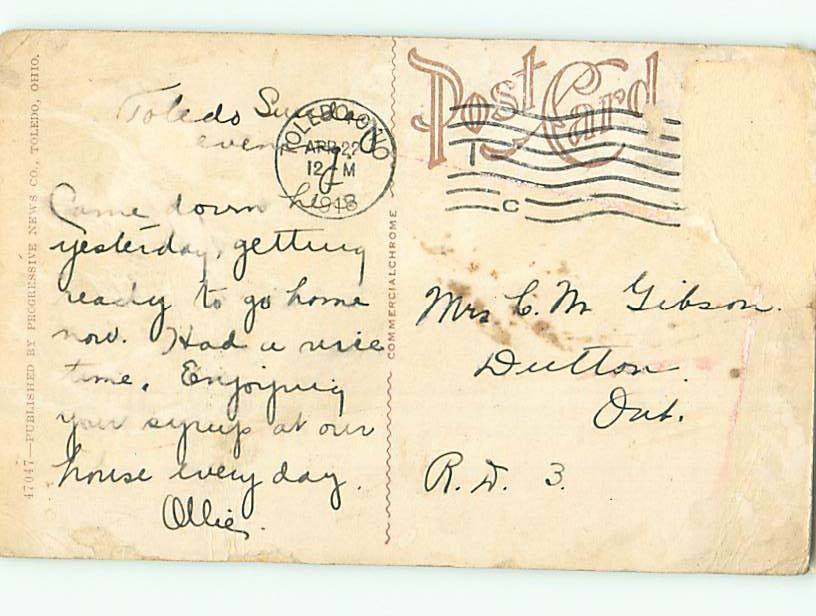 47047—PUBLISHED BY PROGRESSIVE NEWS CO., TOLEDO, OHIO.
Toledo Sunday
evening
Came down here
yesterday, getting
ready to go home
now. Had a nice
time. Enjoying
your syrup at our
house every day.
Ollie.
TOLEDO, OHIO
APR 22
12 M
1918
COMMERCIALCHROME
Post Card
C
Mrs C. M Gibson.
Dutton.
Ont.
R. D. 3.